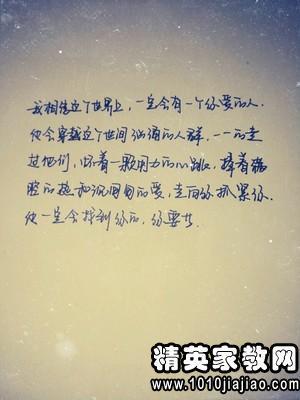 我相信这个世界上，一定会有一个你爱的人.
他会穿越这个世间汹涌的人群，一一的走
过他们，怀着一颗用力的心跳，捧着满
腔的热和沉甸甸的爱，走向你抓紧你.
他一定会找到你的，你要等.
精英家教网
www.1010jiajiao.com